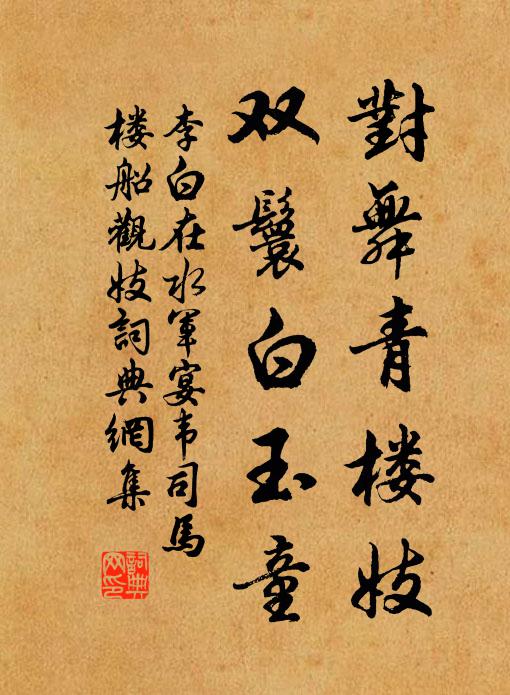 對舞青楼妓
双鬟白玉童
李白在水军宴韦司馬
楼船觀妓詞典網集
詞典网印